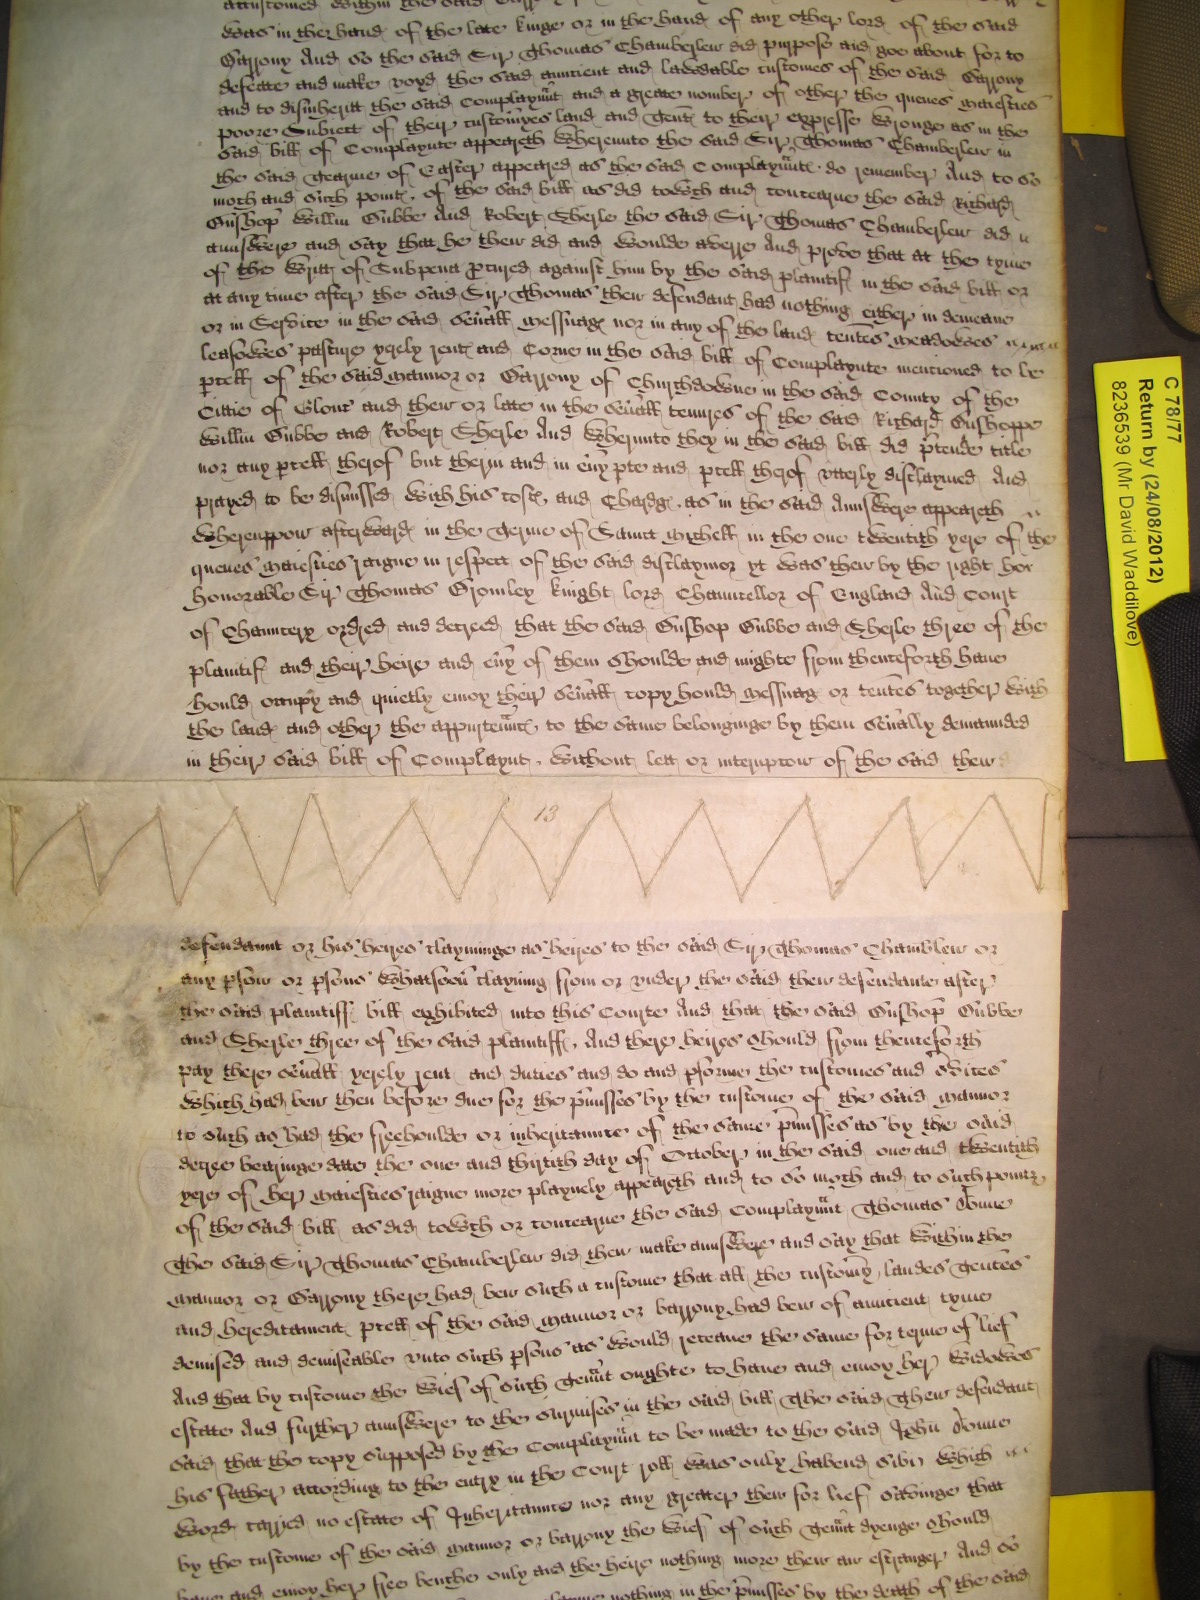 accustomed within the said
was in the hand of the late kinge or in the hand of any other lord of the said
Barrony And so the said Sir Thomas Chamberlen did purpose and goe about for to
defeate and make voyd the said auncient and lawdable customes of the said Barrony
and to disinherit the said Complaynt and a greate nomber of other the quenes maiesties
poore Subiect of their customyes land and tent to their expresse wronge as in the
said bill of Complaynte appeareth Wherunto the said Sir Thomas Chamberlen in
the said Tearme of Easter appeared as the said Complaynt do remember And to so
moch and such point of the said bill as did towch and concearne the said Richard
Bushop Willm Gubbe And Robert Sherle the said Sir Thomas Chamberlen did
aunswere and say that he then did and woulde averre And prove that at the tyme
of the writt of Subpena pcured against him by the said plaintif in the said bill or
at any time after the said Sir Thomas then defendant had nothing either in demeane
or in Service in the said seuall messuag nor in any of the land tentes meadowes
leasowes pasture yerely rent and Corne in the said bill of Complaynte mentioned to be
pcell of the said mannor or Barrony of Churchdowne in the said County of the
Cittie of Glouc and then or late in the seuall tenures of the said Richard Bushoppe
Willm Gubbe and Robert Sherle And wherunto they in the said bill did ptende title
nor any pcell therof but therin and in euy pte and pcell therof vtterly disclaymed And
prayed to be dismissed with his cost and Chardg as in the said Aunswere appeareth
Whereuppon afterward in the Terme of Saint Michell in the one twentith yere of the
quenes maiesties raigne in respect of the said disclaymor yt was then by the right hor
honorable Sir Thomas Bromley knight lord Chauncellor of England And Court
of Chauncery ordred and decreed that the said Bushop Gubbe and Sherle three of the
plaintif and their heire and euy of them shoulde and mighte from thenceforth haue
hould occupy and quietly enioy their seuall copyhould messuag or tentes together with
the land and other the appurtennt to the same belonginge by them seually demaunded
in their said bill of Complaynt without lett or interupcon of the said then
13
defendaunt or his heires clayminge as heires to the said Sir Thomas Chamblen or
any pson or psons whatsoeu clayming from or vnder the said then defendante after
the said plaintiff bill exhibited into this Courte And that the said Bushop Gubbe
and Sherle three of the said plaintiff And there heires should from thenceforth
pay there seuall yerely rent and duties and do and pforme the customes and Svices
which had ben then before due for the pmisses by the custome of the said mannor
to such as had the freehoulde or inheritaunce of the same pmisses as by the said
decree bearinge date the one and thirtith day of October in the said one and twentith
yere of her maiesties raigne more playnely appeareth and to so moch and to such pointe
of the said bill as did towch or concearne the said Complaynt Thomas Donne
The said Sir Thomas Chamberlen did then make aunswere and say that within the
mannor or Barrony there had ben such a custome that all the customy landes Tentes
and hereditament pcell of the said mannor or barrony had ben of auncient tyme
demised and demiseable vnto such psons as would receaue the same for terme of lief
And that by custome the wief of such Tennt oughte to haue and enioy her widowes
estate And further aunswere to the surmises in the said bill The said Then defendant
said that the copy supposed by the Complaynt to be made to the said John Donne
his father according to the entry in the Court roll was only habend sibi which
word carried no estate of Inheritaunce nor any greater then for lief savinge that
by the custome of the said mannor or barrony the wief of such Tennt dyenge should
haue and enioy her free benche only and the heire nothing more then an estranger And so
nothing in the pmisses by the death of the said
C 78/77
Return by (24/08/2012)
8236539 (Mr David Waddilove)